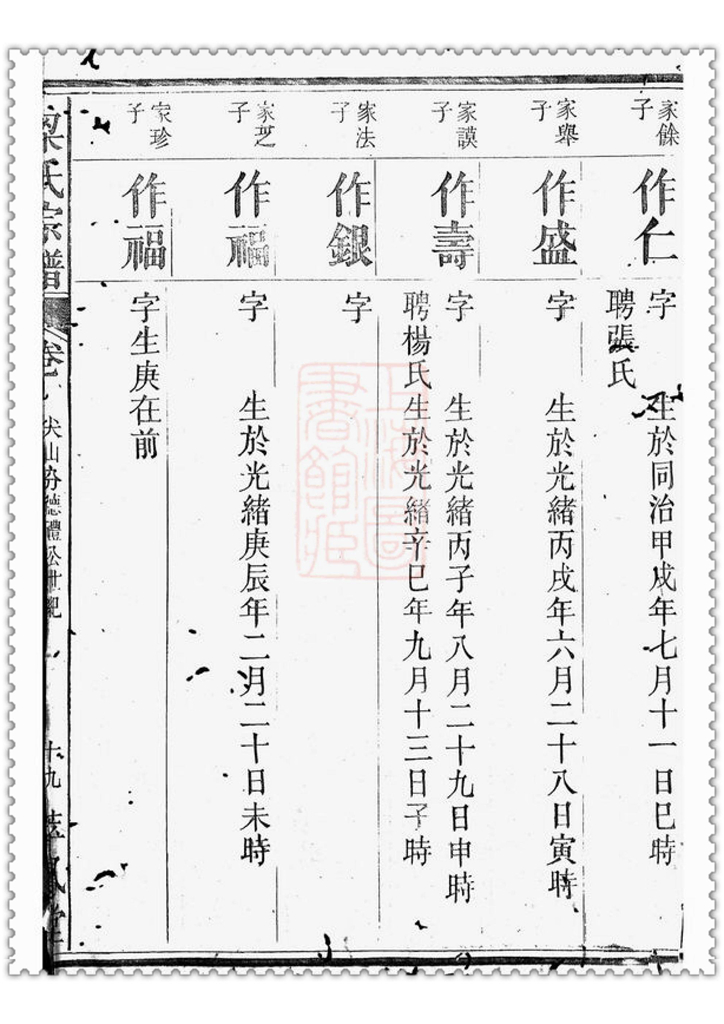 家餘子
作仁
字 生於同治甲戌年七月十一日巳時
聘張氏
家舉子
作盛
字 生於光緒丙戌年六月二十八日寅時
家謨子
作壽
字 生於光緒丙子年八月二十九日申時
聘楊氏生於光緒辛巳年九月十三日子時
家法子
作銀
字
家芝子
作福
字 生於光緒庚辰年二月二十日未時
家珍子
作福
字生庚在前
氏宗譜
卷
尖山分德禮公世紀
十九
上海圖書館藏